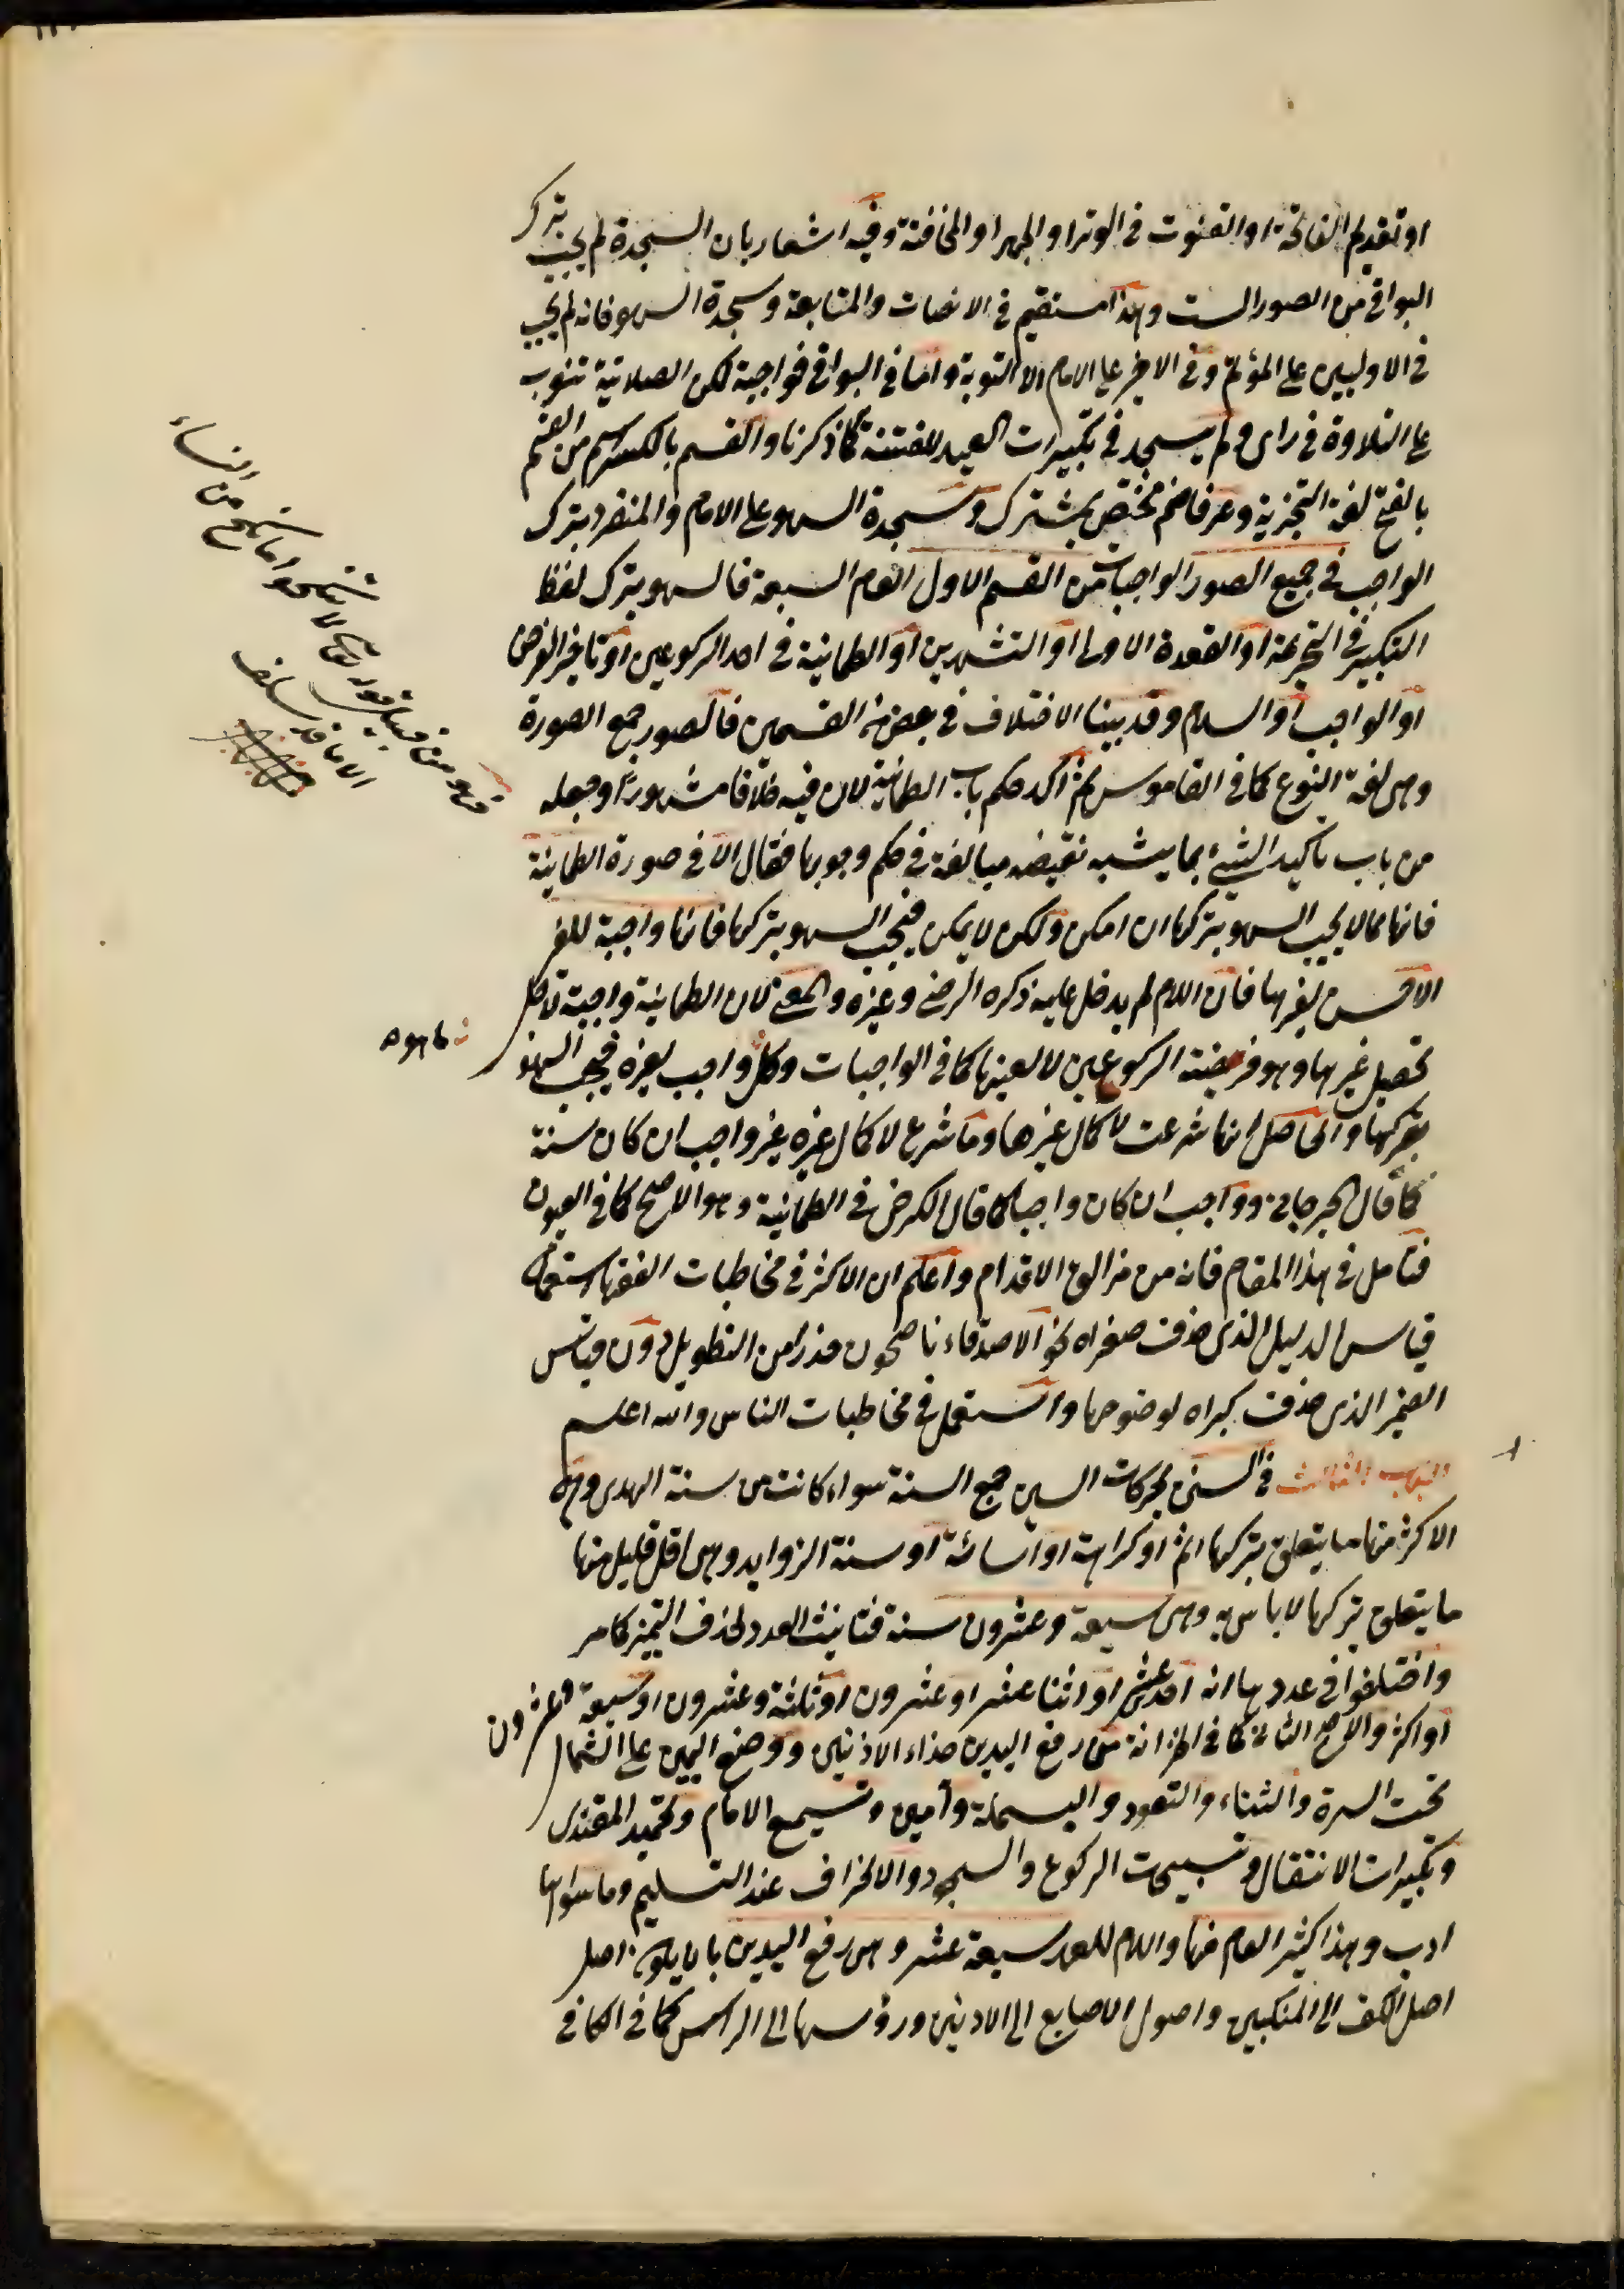 او تقديم الفاتحة او القنوت في الوتر او الجهر او المخافتة وفيه اشعار بان السجدة لم يجب بترك
البواقي من الصور الست وهذا مستقيم في الانصات والمتابعة وسجدة السهو فانه لم يجب
في الاوليين على المؤتم وفي الاخير على الامام الا التوبة واما في البواقي فواجبة لكن الصلاتية تنوب
على التلاوة في راى ولم يسجد في تكبيرات العيد للفتنة كما ذكرنا والقسم بالكسر اسم من القسم
بالفتح لغة التجزية وعرفا ضم مختص بمشترك وسجدة السهو على الامام والمنفرد بترك
الواجب في جميع الصور الواجبات من القسم الاول العام السبعة فالسهو بترك لفظ
التكبير في التحريمة او القعدة الاولى او التشهدين او الطمانية في احد الركوعين او تاخير الفرض
او الواجب او السلام وقد بينا الاختلاف في بعض من القسمين فالصور جمع الصورة
وهي لغة النوع كما في القاموس ثم اكد حكم باب الطمانية لان فيه خلافا مشهورا وجعله
من باب تاكيد الشيء بما يشبه نقيضه مبالغة في حكم وجوبها فقال الا في صورة الطمانية
فانها مما لا يجب السهو بتركها ان امكن ولكن لا يمكن فيجب السهو بتركها فانها واجبة للغير
الاقـ‍ـس لغيرها فان اللام لم يدخل عليه ذكره الرضي وغيره والمعنى لان الطمانية واجبة لاجل
تحصيل غيرها وهو فريضة الركوعين لا لعينها كما في الواجبات وكل واجب لغيره فيجب السهو
بتركها والحاصل انها شرعت لاكمال غيرها وما شرع لاكمال غيره غير واجب ان كان سنة
كما قال الجرجاني وواجب ان كان واجبا كما قال الكرخي في الطمانية وهو الاصح كما في العيون
فتامل في هذا المقام فانه من مزالق الاقدام واعلم ان الاكثر في مخاطبات الفقهاء استعمال
قياس الدليل الذي حذف صغراه نحو الاصدقاء ناصحون حذرا من التطويل دون قياس
الضمير الذي حذف كبراه لوضوحها والمستعمل في مخاطبات الناس والله اعلم
الباب الثالث في السنن بحركات السين جمع السنة سواء كانت من سنة الهدى وهي
الاكثر منها ما يتعلق بتركها اثم او كراهة او اسائة او سنة الزوايد وهي اقل قليل منها
ما يتعلق بتركها لا باس به وهي سبعة وعشرون سنة فتانيث العدد لحذف التميز كما مر
واختلفوا في عددها انه احد عشر او اثنا عشر او عشرون او ثلثة وعشرون او سبعة وعشرون
او اكثر والاصح الثاني كما في الخزانة من رفع اليدين حذاء الاذنين ووضع اليمين على الشمال
تحت السرة والثناء والتعوذ والبسملة وآمين وتسميع الامام وتحميد المقتدى
وتكبيرات الانتقال وتسبيحات الركوع والسجود والانحراف عند التسليم وما سواها
ادب وهذا كثير العام منها واللام للعهد سبعة عشر وهي رفع اليدين بان يكون اصل
اصل الكف الى المنكبين واصول الاصابع الى الاذنين ورؤسها الى الراس كما في الكافي
فهو من قبيل قوله تعالى لا تنكحوا ما نكح من النساء
الا ما قد سلف
ما هو ه